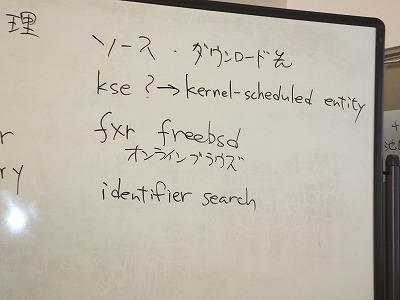 理
ソース・ダウンロード先
kse ? → kernel-scheduled entity
fxr freebsd
オンラインブラウズ
r
ry
identifier search